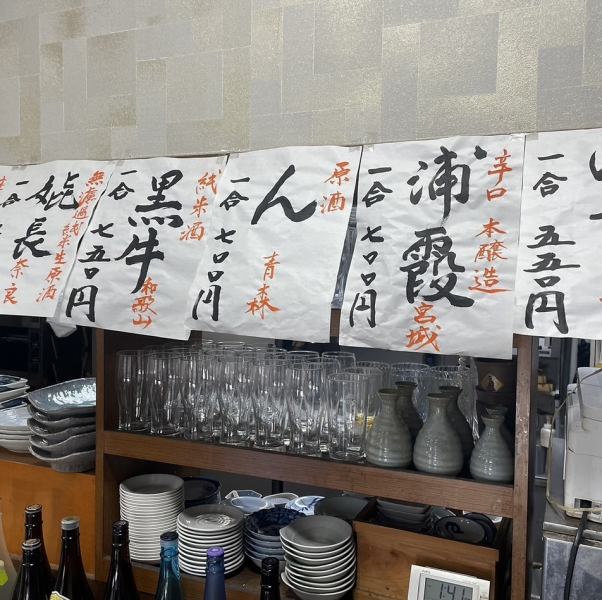 辛口 本醸造
浦霞
宮城
一合 七〇〇円
原酒
ん
青森
一合 七〇〇円
純米酒
黒牛
和歌山
一合 七五〇円
無濾過純米生原酒
長
奈良
一合
一合 五五〇円
1:41